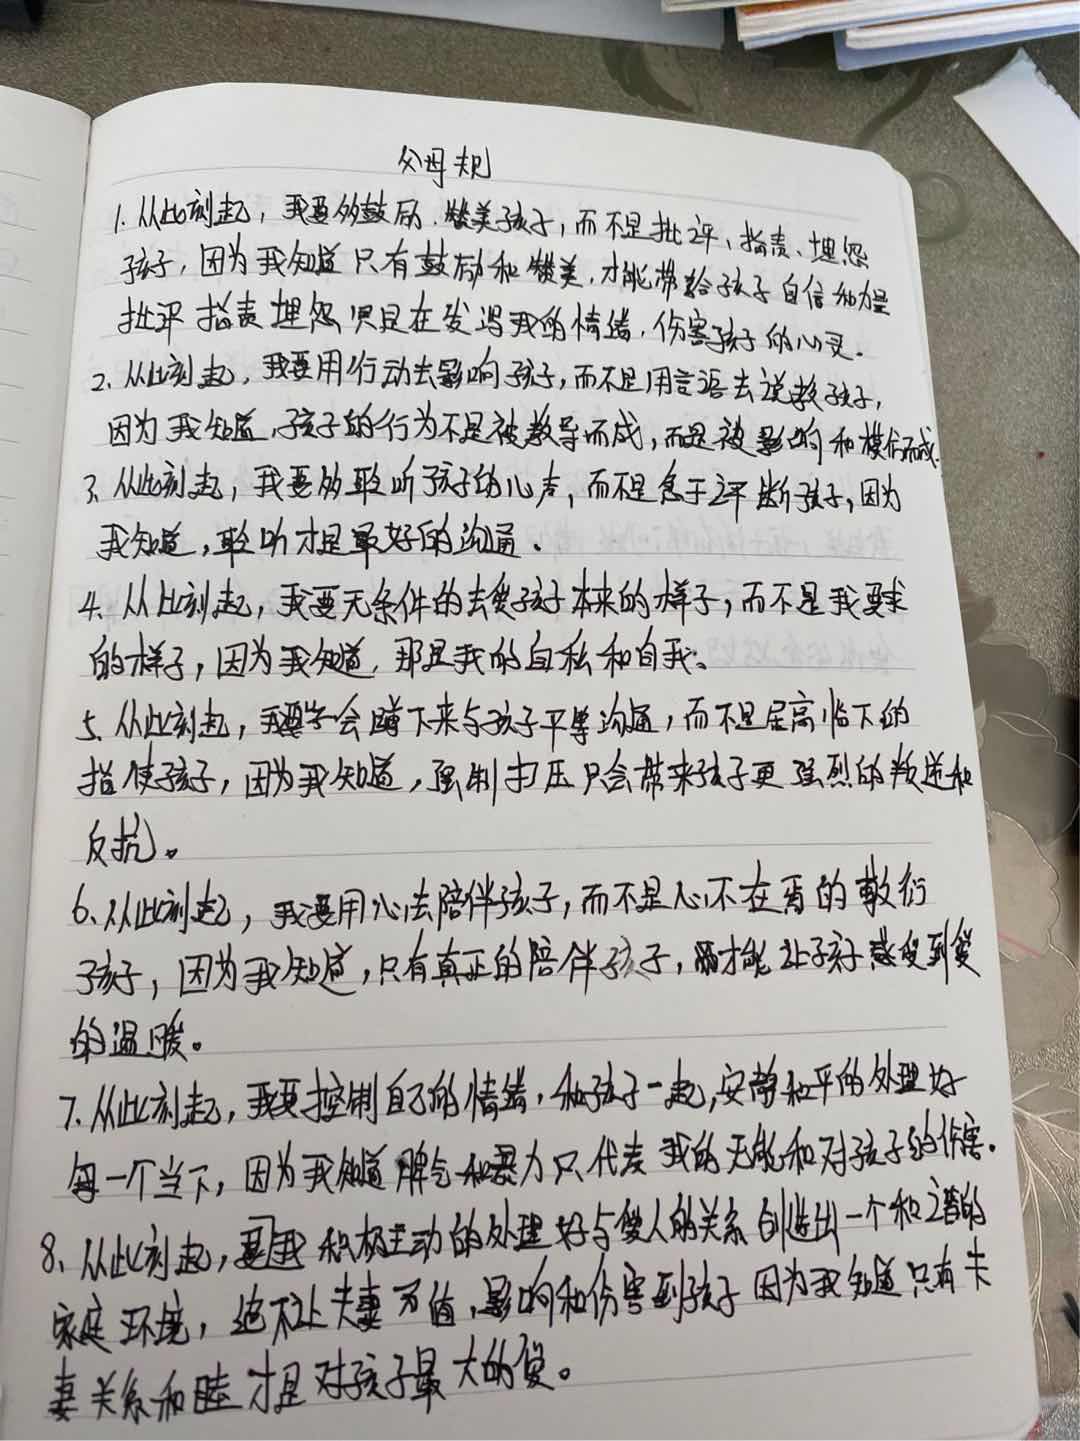 父母规
1. 从此刻起，我要多鼓励、赞美孩子，而不是批评、指责、埋怨
孩子，因为我知道只有鼓励和赞美，才能带给孩子自信和力量
批评指责埋怨只是在发泄我的情绪，伤害孩子的心灵.
2. 从此刻起，我要用行动去影响孩子，而不是用言语去说教孩子，
因为我知道，孩子的行为不是被教导而成，而是被影响和模仿而成.
3、从此刻起，我要多聆听孩子的心声，而不是急于评断孩子，因为
我知道，聆听才是最好的沟通.
4、从此刻起，我要无条件的去爱孩子本来的样子，而不是我要求
的样子，因为我知道，那是我的自私和自我。
5、从此刻起，我要学会蹲下来与孩子平等沟通，而不是居高临下的
指使孩子，因为我知道，强制打压只会带来孩子更强烈的叛逆和
反抗。
6、从此刻起，我要用心去陪伴孩子，而不是心不在焉的敷衍
孩子，因为我知道，只有真正的陪伴孩子，才能让孩子感受到爱
的温暖。
7、从此刻起，我要控制自己的情绪，和孩子一起，安静和平的处理好
每一个当下，因为我知道脾气和暴力只代表我的无能和对孩子的伤害.
8、从此刻起，要我积极主动的处理好与爱人的关系创造出一个和谐的
家庭环境，绝不让夫妻不值，影响和伤害到孩子因为我知道只有夫
妻关系和睦才是对孩子最大的爱。